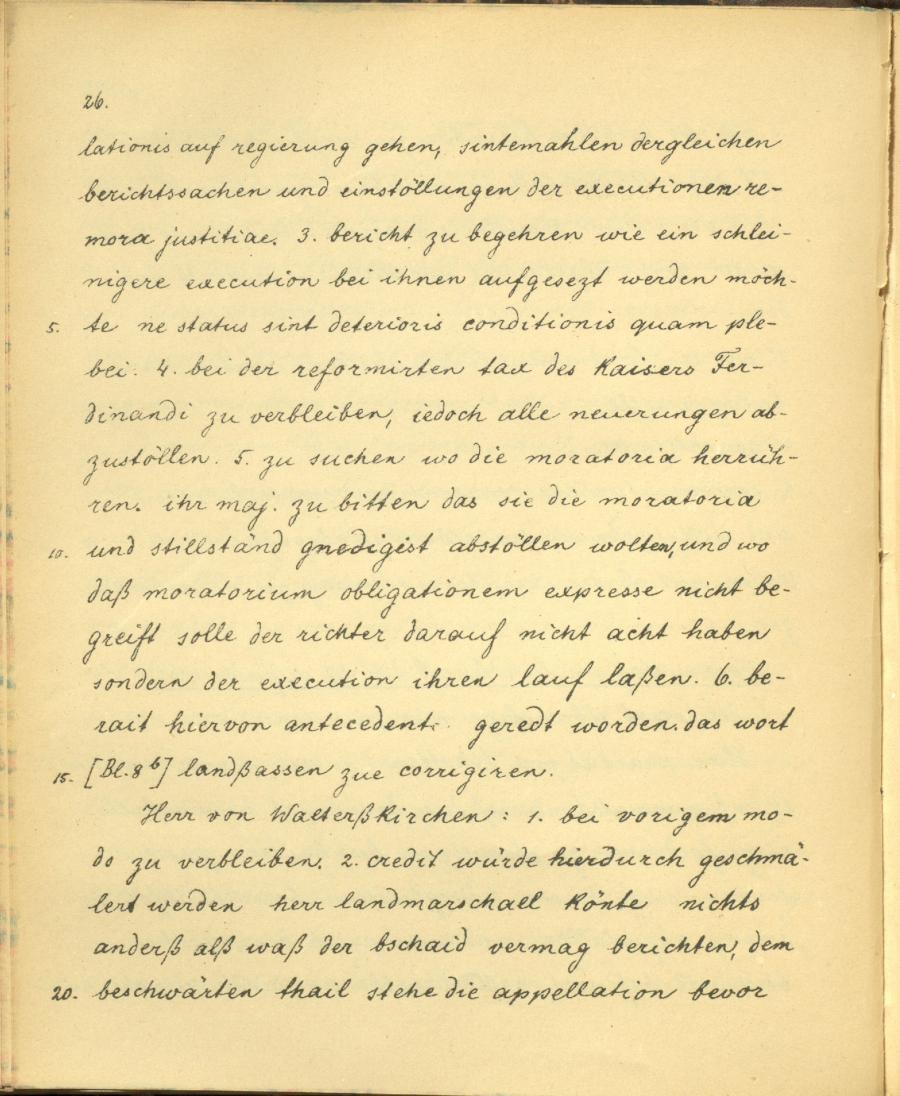 26.
lationis auf regierung gehen, sintemahlen dergleichen
berichtssachen und einstöllungen der executionen re-
mora justitiae. 3. bericht zu begehren wie ein schlei-
nigere execution bei ihnen aufgesezt werden möch-
5. te ne status sint deterioris conditionis quam ple-
bei. 4. bei der reformirten tax des Kaisers Fer-
dinandi zu verbleiben, iedoch alle neuerungen ab-
zustöllen. 5. zu suchen wo die moratoria herrüh-
ren. ihr maj. zu bitten das sie die moratoria
10. und stillständ gnedigist abstöllen wolten, und wo
daß moratorium obligationem expresse nicht be-
greift solle der richter darauf nicht acht haben
sondern der execution ihren lauf laßen. 6. be-
rait hiervon antecedent. geredt worden. das wort
15. [Bl. 8 b] landßassen zue corrigiren.
Herr von Walterßkirchen: 1. bei vorigem mo-
do zu verbleiben. 2. credit würde hierdurch geschmä-
lert werden herr landmarschall könte nichts
anderß alß waß der bschaid vermag berichten, dem
20. beschwärten thail stehe die appellation bevor